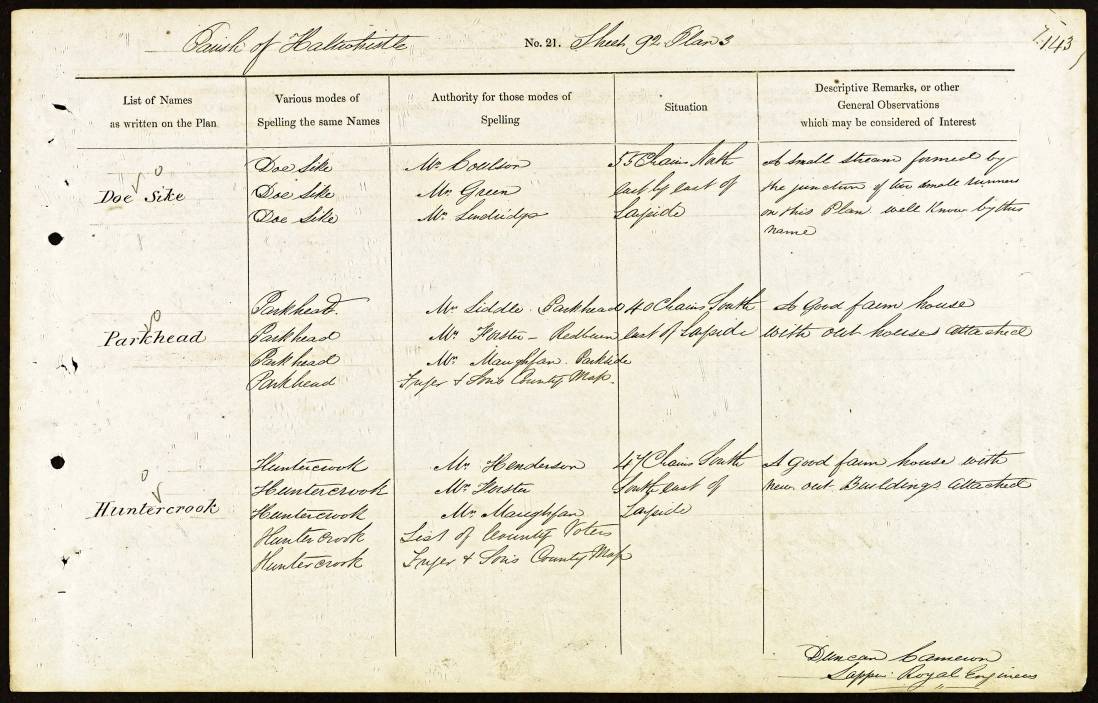 Parish of Haltwhistle No. 21. Sheet 92 Plan 3 143
List of Names
as written on the Plan
Various modes of
Spelling the same Names
Authority for those modes of
Spelling
Situation
Descriptive Remarks, or other
General Observations
which may be considered of Interest
Doe Sike
Doe Sike
Doe Sike
Doe Sike
Mr. Coulson
Mr. Green
55 Chains North
east by east of
Layside
A small stream formed by
the junction of two small runners
on this Plan well known by this
name
Parkhead
Parkhead.
Parkhead
Parkhead
Parkhead
Mr. Liddle. Parkhead
Mr. Forster - Redburn
Mr. Maughan. Parkside
Fryer & Sons County Map.
40 Chains South
east of Layside
A Good farm house
with out houses attached
Huntercrook
Huntercrook
Huntercrook
Huntercrook
Huntercrook
Huntercrook
Mr. Henderson
Mr. Forster
Mr. Maughan
List of County Voters
Fryer & Sons County Map
47 Chains South
South east of
Layside
A Good farm house with
new out Buildings attached
Duncan Cameron
Sapper Royal Engineers